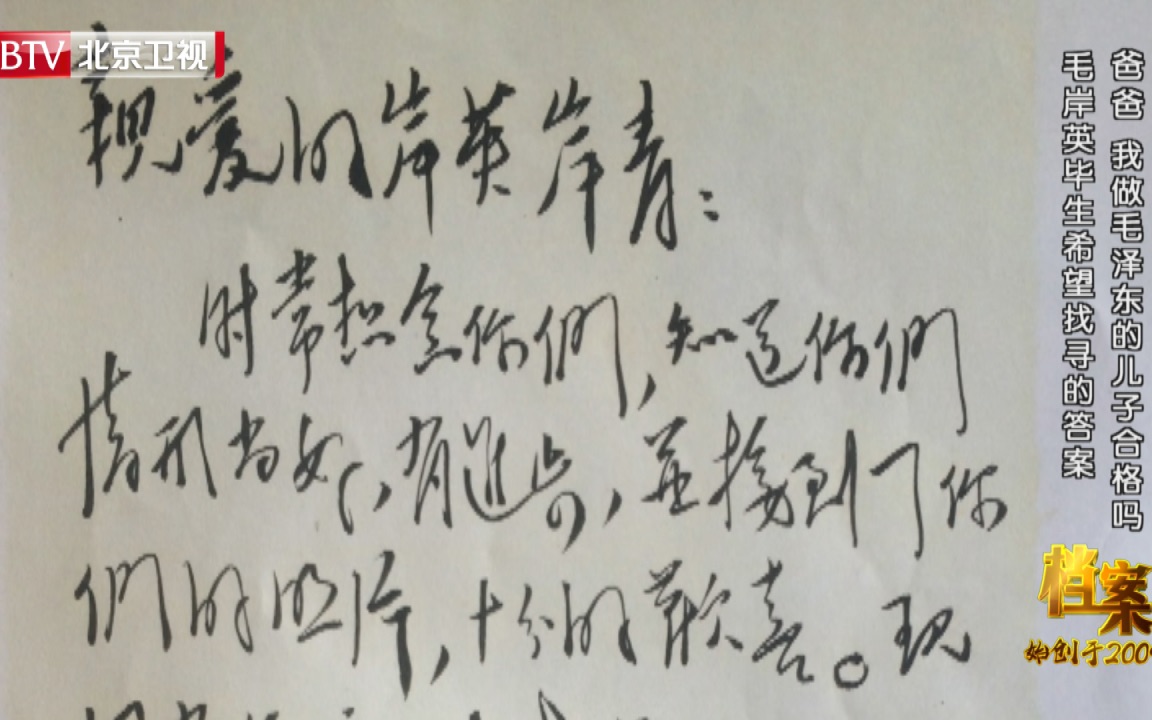 BTV 北京卫视
親爱的岸英岸青：
时常想念你們，知道你們
情形尚好，有進步，並接到了你
們的照片，十分的歡喜。现
爸爸 我做毛泽东的儿子合格吗
毛岸英毕生希望找寻的答案
档案
始创于2009